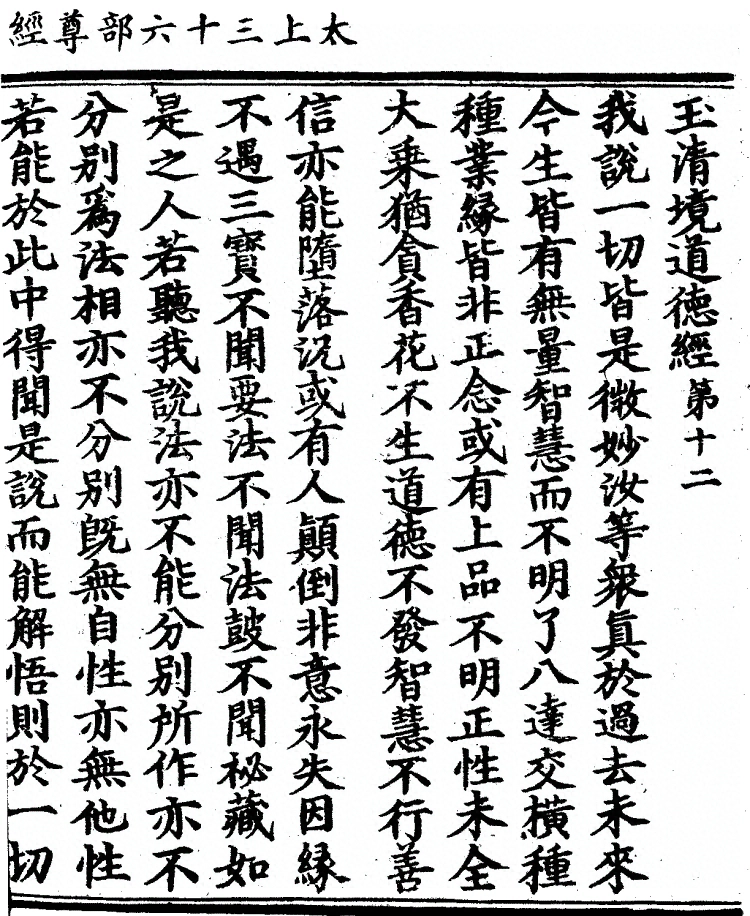 太上三十六部尊經
玉清境道德經第十二
我說一切皆是微妙汝等衆眞於過去未來
今生皆有無量智慧而不明了八達交橫種
種業緣皆非正念或有上品不明正性未全
大乗猶貪香花不生道德不發智慧不行善
信亦能墮落況或有人顚倒非意永失因緣
不遇三寳不聞要法不聞法鼓不聞祕藏如
是之人若聽我說法亦不能分別所作亦不
分別爲法相亦不分別旣無自性亦無他性
若能於此中得聞是說而能解悟則於一切